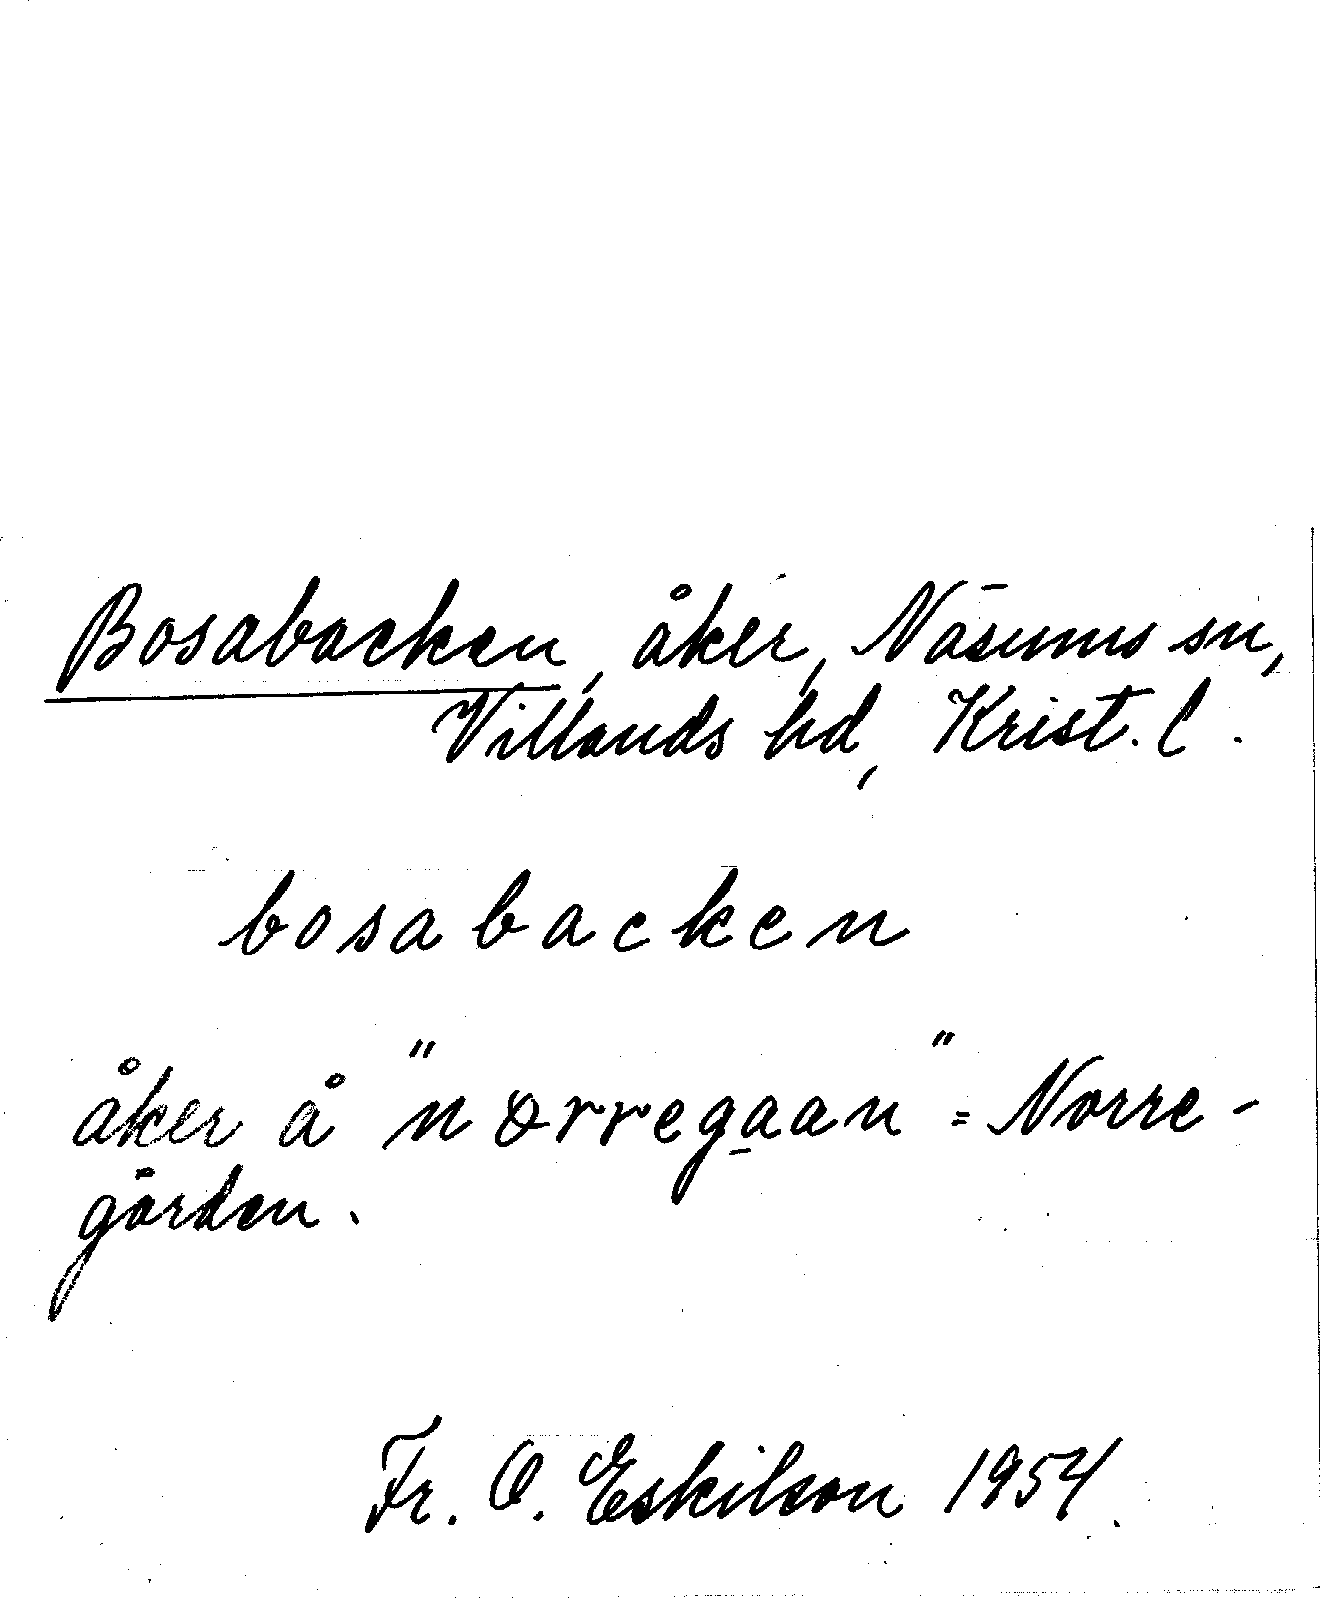 Bosabacken, åker, Näsums sn,
Villands hd, Krist. l.
bosabacken
åker å "nørregaan" = Norre-
gården.
Fr. O. Eskilson 1954.